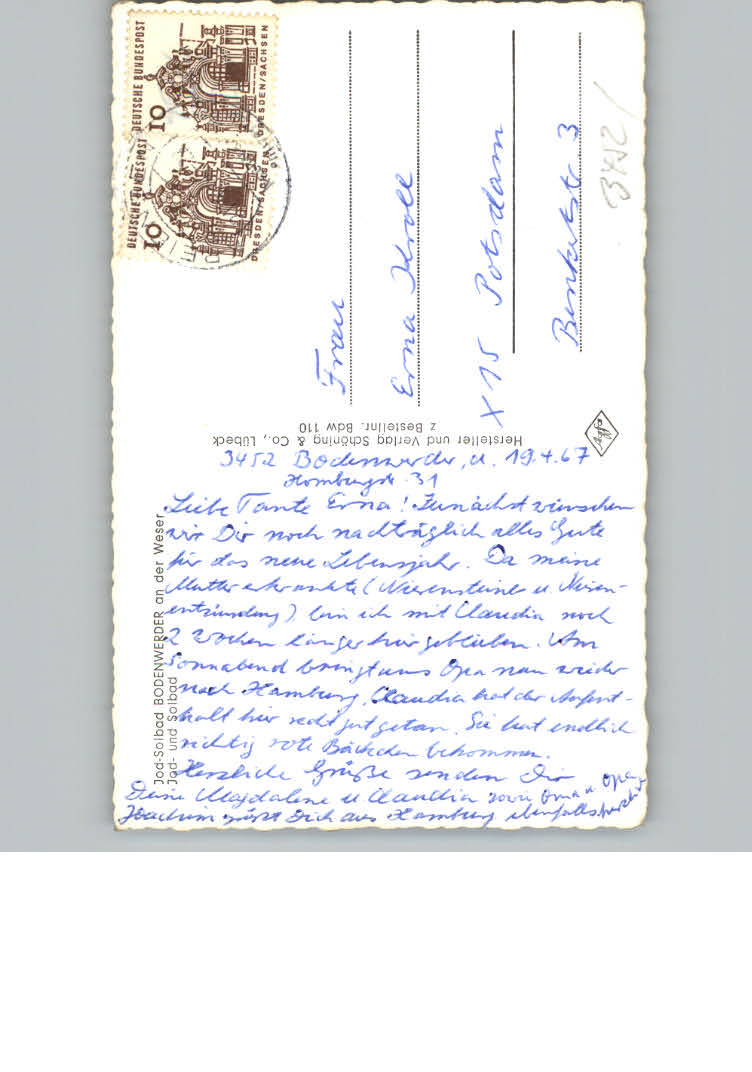 DEUTSCHE BUNDESPOST
10
DRESDEN/SACHSEN
DEUTSCHE BUNDESPOST
10
DRESDEN/SACHSEN
Frau
Erna Kroll
X 15 Potsdam
3
3452
Hersteller und Verlag Schöning & Co., Lübeck
z Bestellnr. Bdw 110
Jod-Solbad BODENWERDER an der Weser
Jod- und Solbad
3452 Bodenwerder, d. 19.4.67
Homburgstr. 31
Liebe Tante Erna! Zunächst wünschen
wir Dir noch nachträglich alles Gute
für das neue Lebensjahr. Da meine
Mutter erkrankte (Nierensteine u. Nieren-
entzündung) bin ich mit Claudia noch
2 Wochen länger hier geblieben. Am
Sonnabend bringt uns Opa nun wieder
nach Hamburg. Claudia hat der Aufent-
halt hier recht gut getan. Sie hat endlich
richtig rote Bäckchen bekommen.
Herzliche Grüße senden Dir
Deine Magdalene u Claudia sowie Oma u. Opa
Joachim grüßt Dich aus Hamburg ebenfalls herzlich